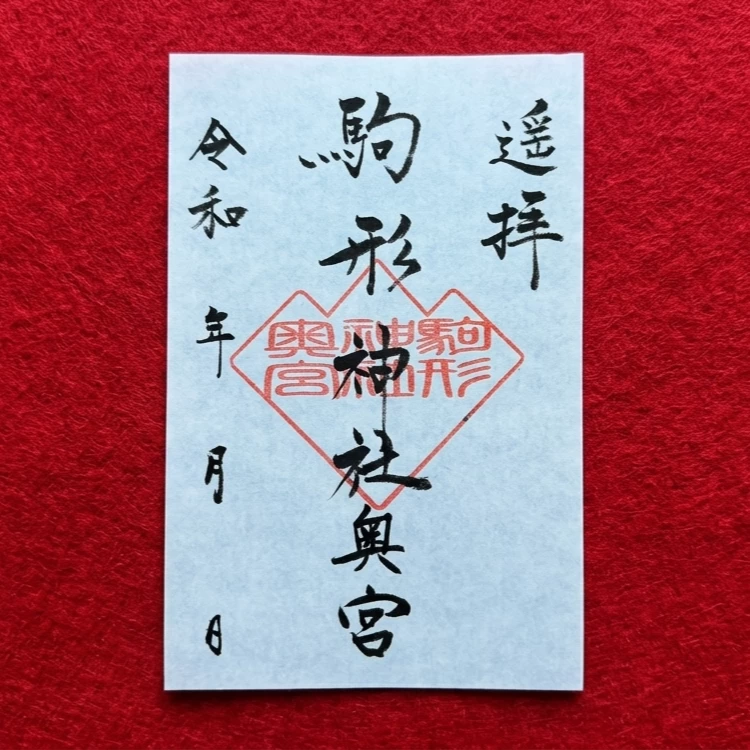 遥拝
駒形神社奥宮
駒形
神社
奥宮
令和 年 月 日